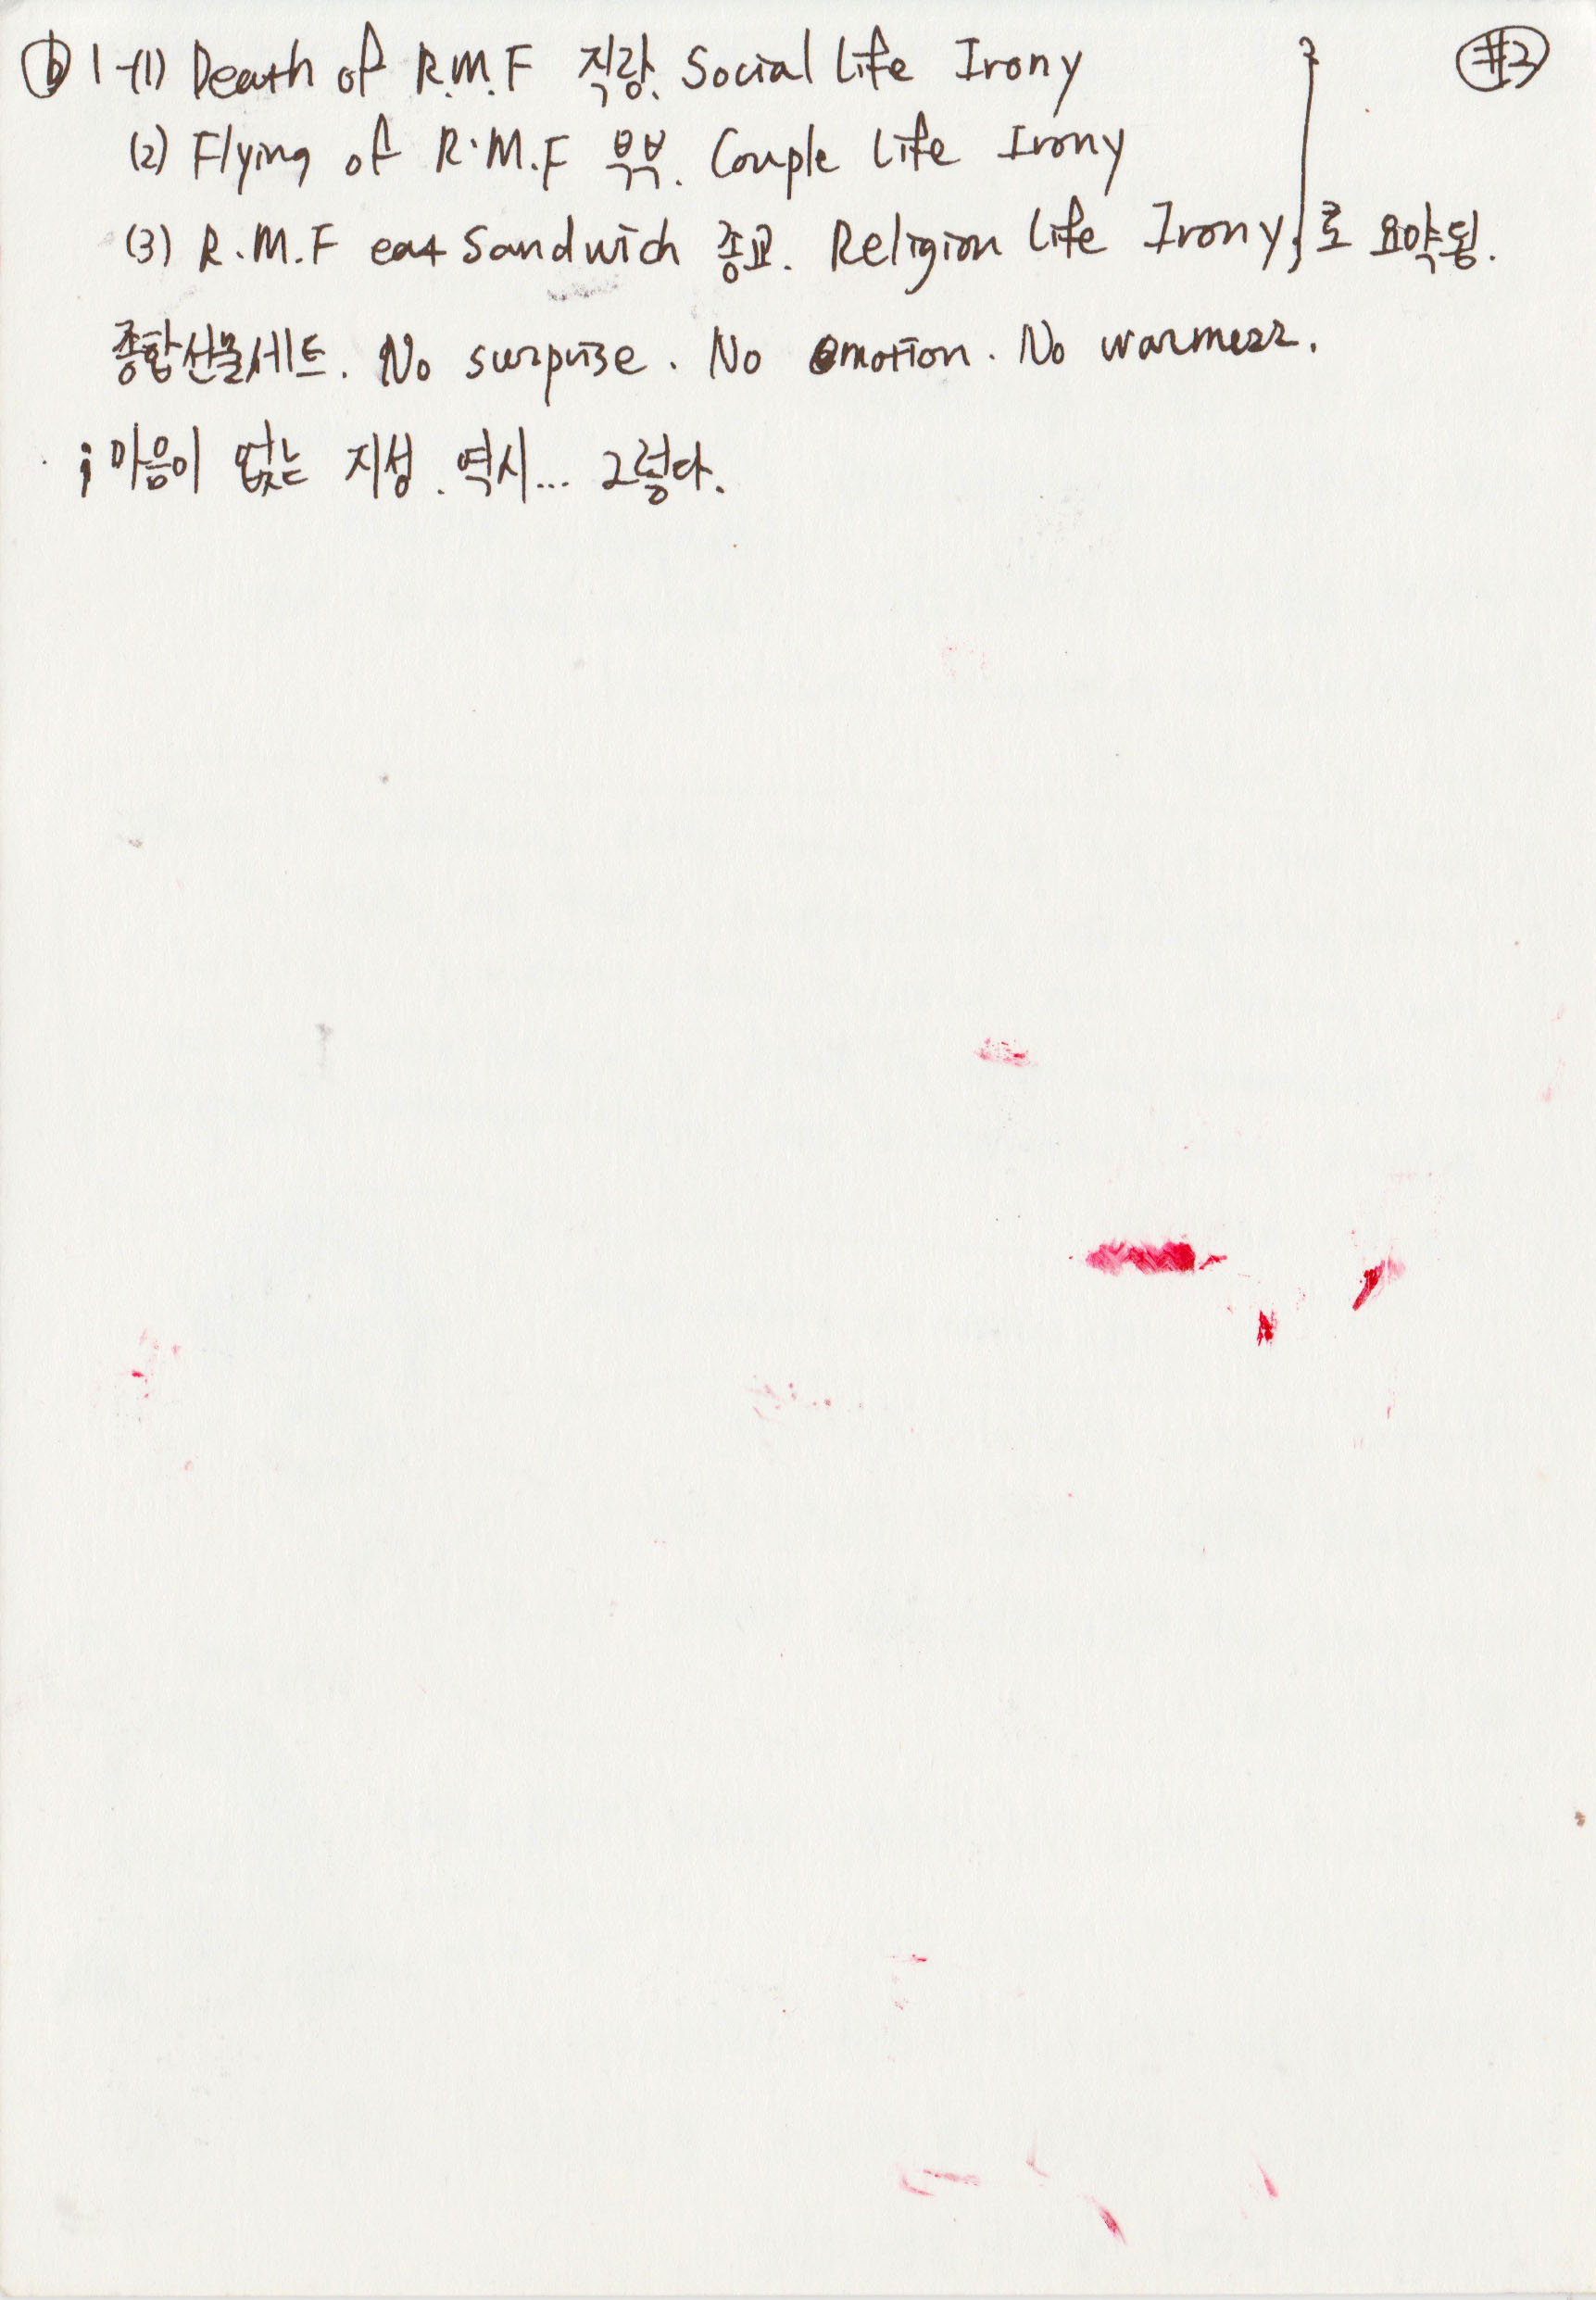 ⓑ 1-(1) Death of R.M.F 직장. Social Life Irony #2
(2) Flying of R.M.F 부부. Couple Life Irony
(3) R.M.F eat Sandwich 종교. Religion Life Irony } 로 요약됨.
종합선물세트. No surprise. No emotion. No warmess.
; 마음이 없는 지성. 역시... 그렇다.